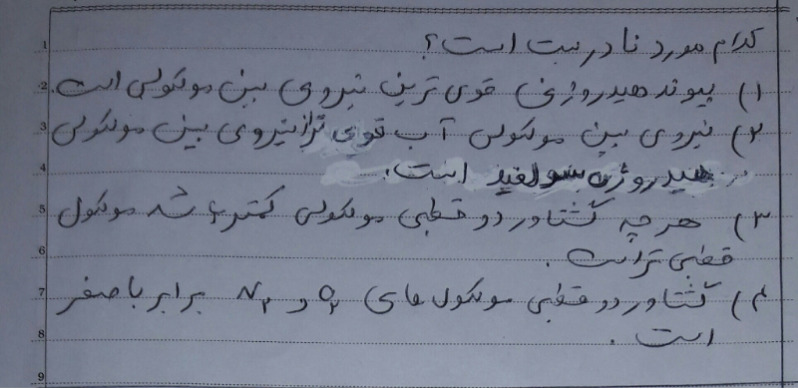 کدام مورد نادرست است؟
۱) پیوند هیدروژنی قوی ترین نیروی بین مولکولی است.
۲) نیروی بین مولکولی آب قوی تر از نیروی بین مولکولی
هیدروژن سولفید است.
۳) هر چه گشتاور دو قطبی مولکولی کمتر باشد مولکول
قطبی تر است.
۴) گشتاور دو قطبی مولکول های O₂ و N₂ برابر با صفر
است.
1
2
3
4
5
6
7
8
9